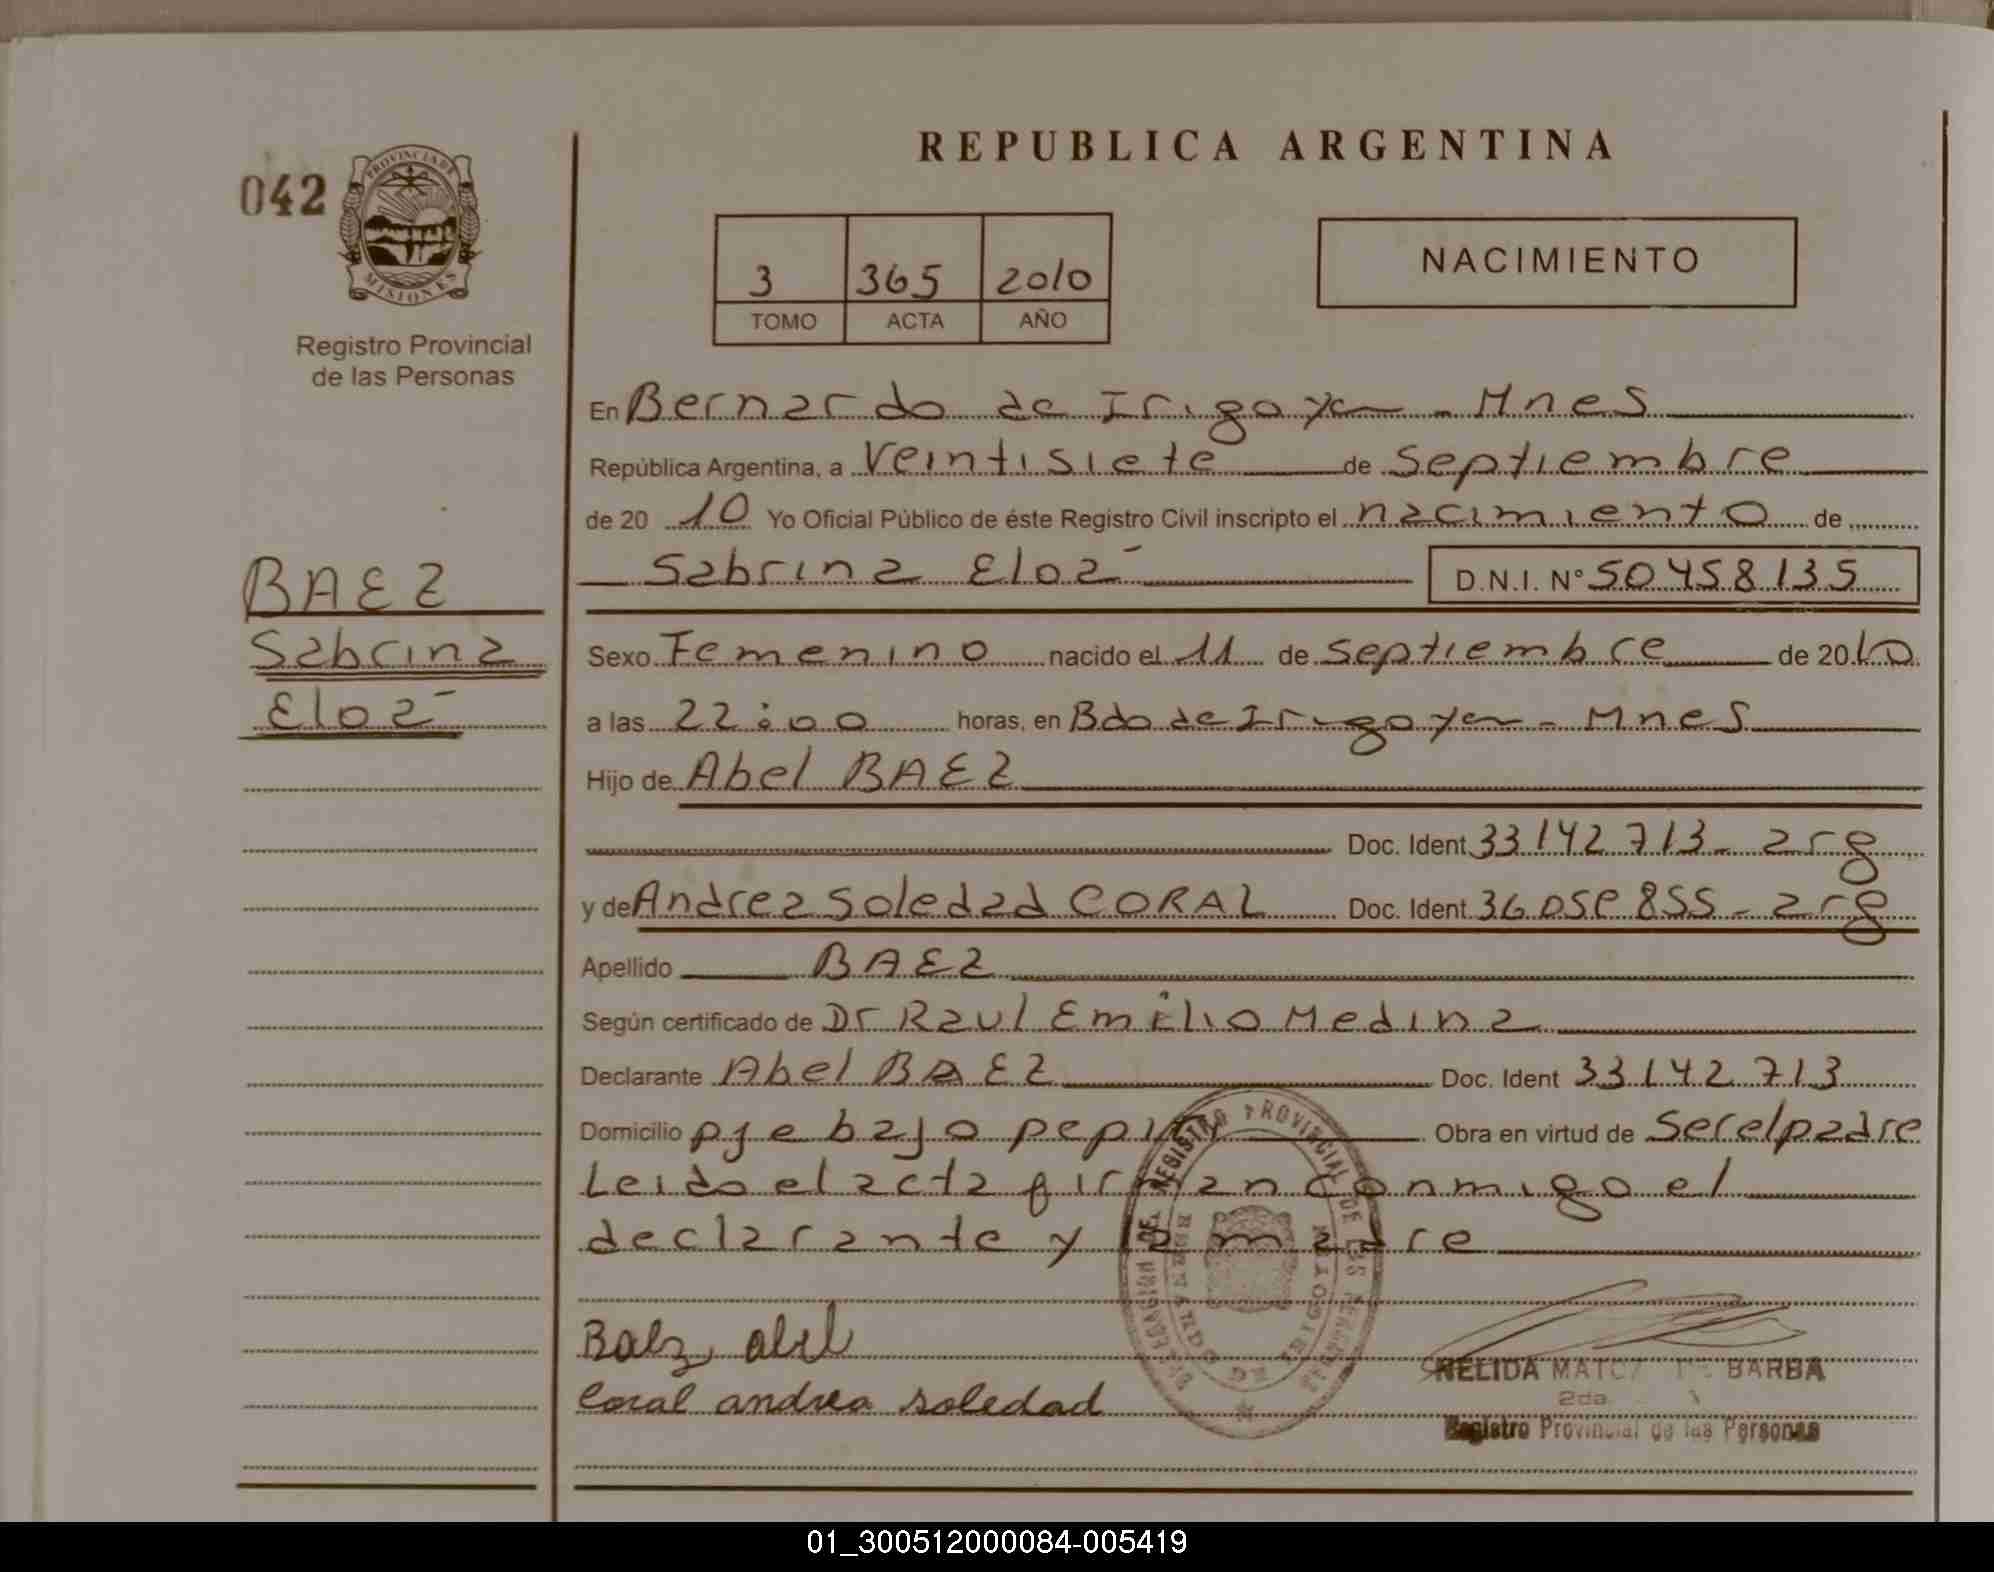 REPUBLICA ARGENTINA
042
PROVINCIA DE
MISIONES
Registro Provincial
de las Personas
3 365 2010
TOMO ACTA AÑO
NACIMIENTO
En Bernardo de Irigoyen - Mnes
República Argentina, a Veintisiete de Septiembre
de 20 10 Yo Oficial Público de éste Registro Civil inscripto el nacimiento de
Sabrina Eloá
D.N.I. Nº 50458135
BAEZ
Sabrina
Eloá
Sexo Femenino nacido el 11 de Septiembre de 2010
a las 22:00 horas, en Bdo de Irigoyen - Mnes
Hijo de Abel BAEZ
Doc. Ident 33142713 - arg
y de Andrea Soledad CORAL Doc. Ident 855 - arg
Apellido BAEZ
Según certificado de Dr Raul Emilio Medina
Declarante Abel BAEZ Doc. Ident 33142713
Domicilio pje bajo Obra en virtud de Ser el padre
Leido el acta firman conmigo el
declarante y la madre
Baez abel
Coral andrea soledad
DELEGACION DEL REGISTRO PROVINCIAL DE LAS PERSONAS
BERNARDO DE IRIGOYEN
NELIDA DE BARBA
2da.
Registro Provincial de las Personas
01_300512000084-005419